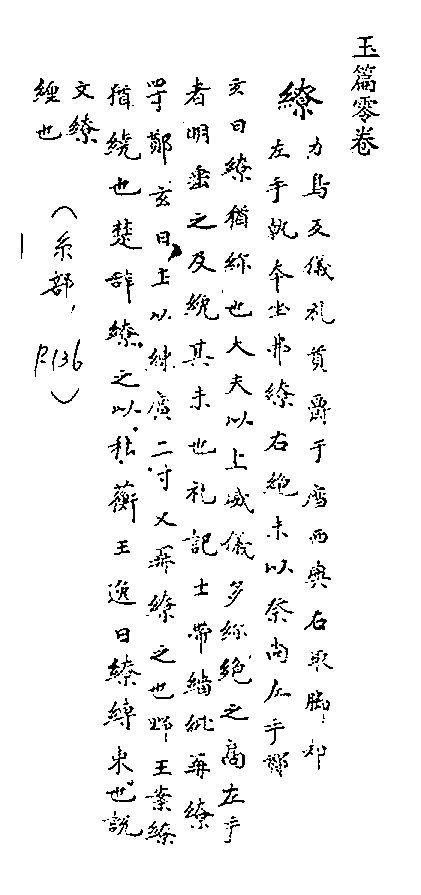 玉篇零卷
繚 力鳥反儀礼奠爵于席西興右取脚却
左手執本坐弗繚右絶末以祭尚左手鄭
玄曰繚猶紾也大夫以上威儀多紾絶之尚左手
者明垂之及絻其末也礼記士帶繚
鄭玄曰上以練廣二寸又再繚之也野王案繚
猶繞也楚辞繚之以杜蘅王逸曰繚縛束也說
文繚
纏也
（糸部，P.136）